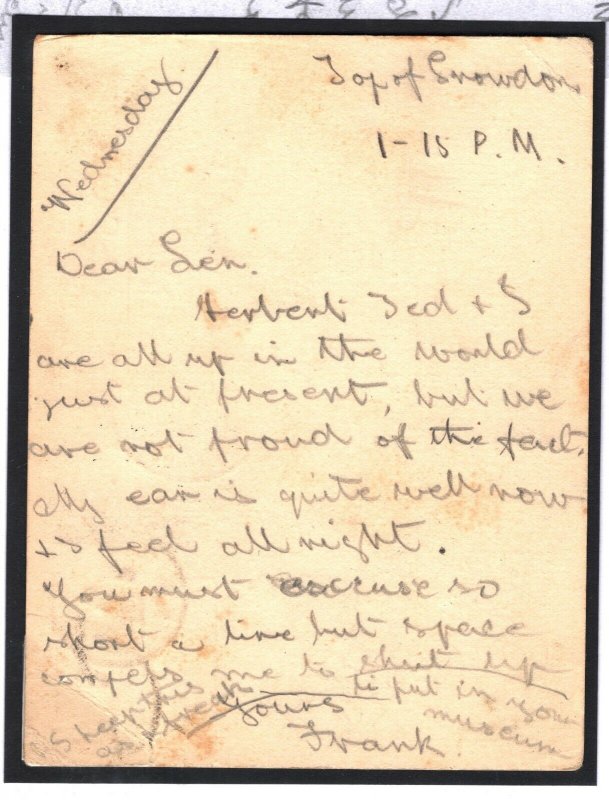 Wednesday.
Top of Snowdon
1-15 P.M.
Dear Len.
Herbert Ted & I
are all up in the world
just at present, but we
are not proud of the fact.
My ear is quite well now
& I feel all right.
You must excuse so
short a line but space
compels me to shut up
Yours
Frank.
PS keep this
as treat
to put in your
museum